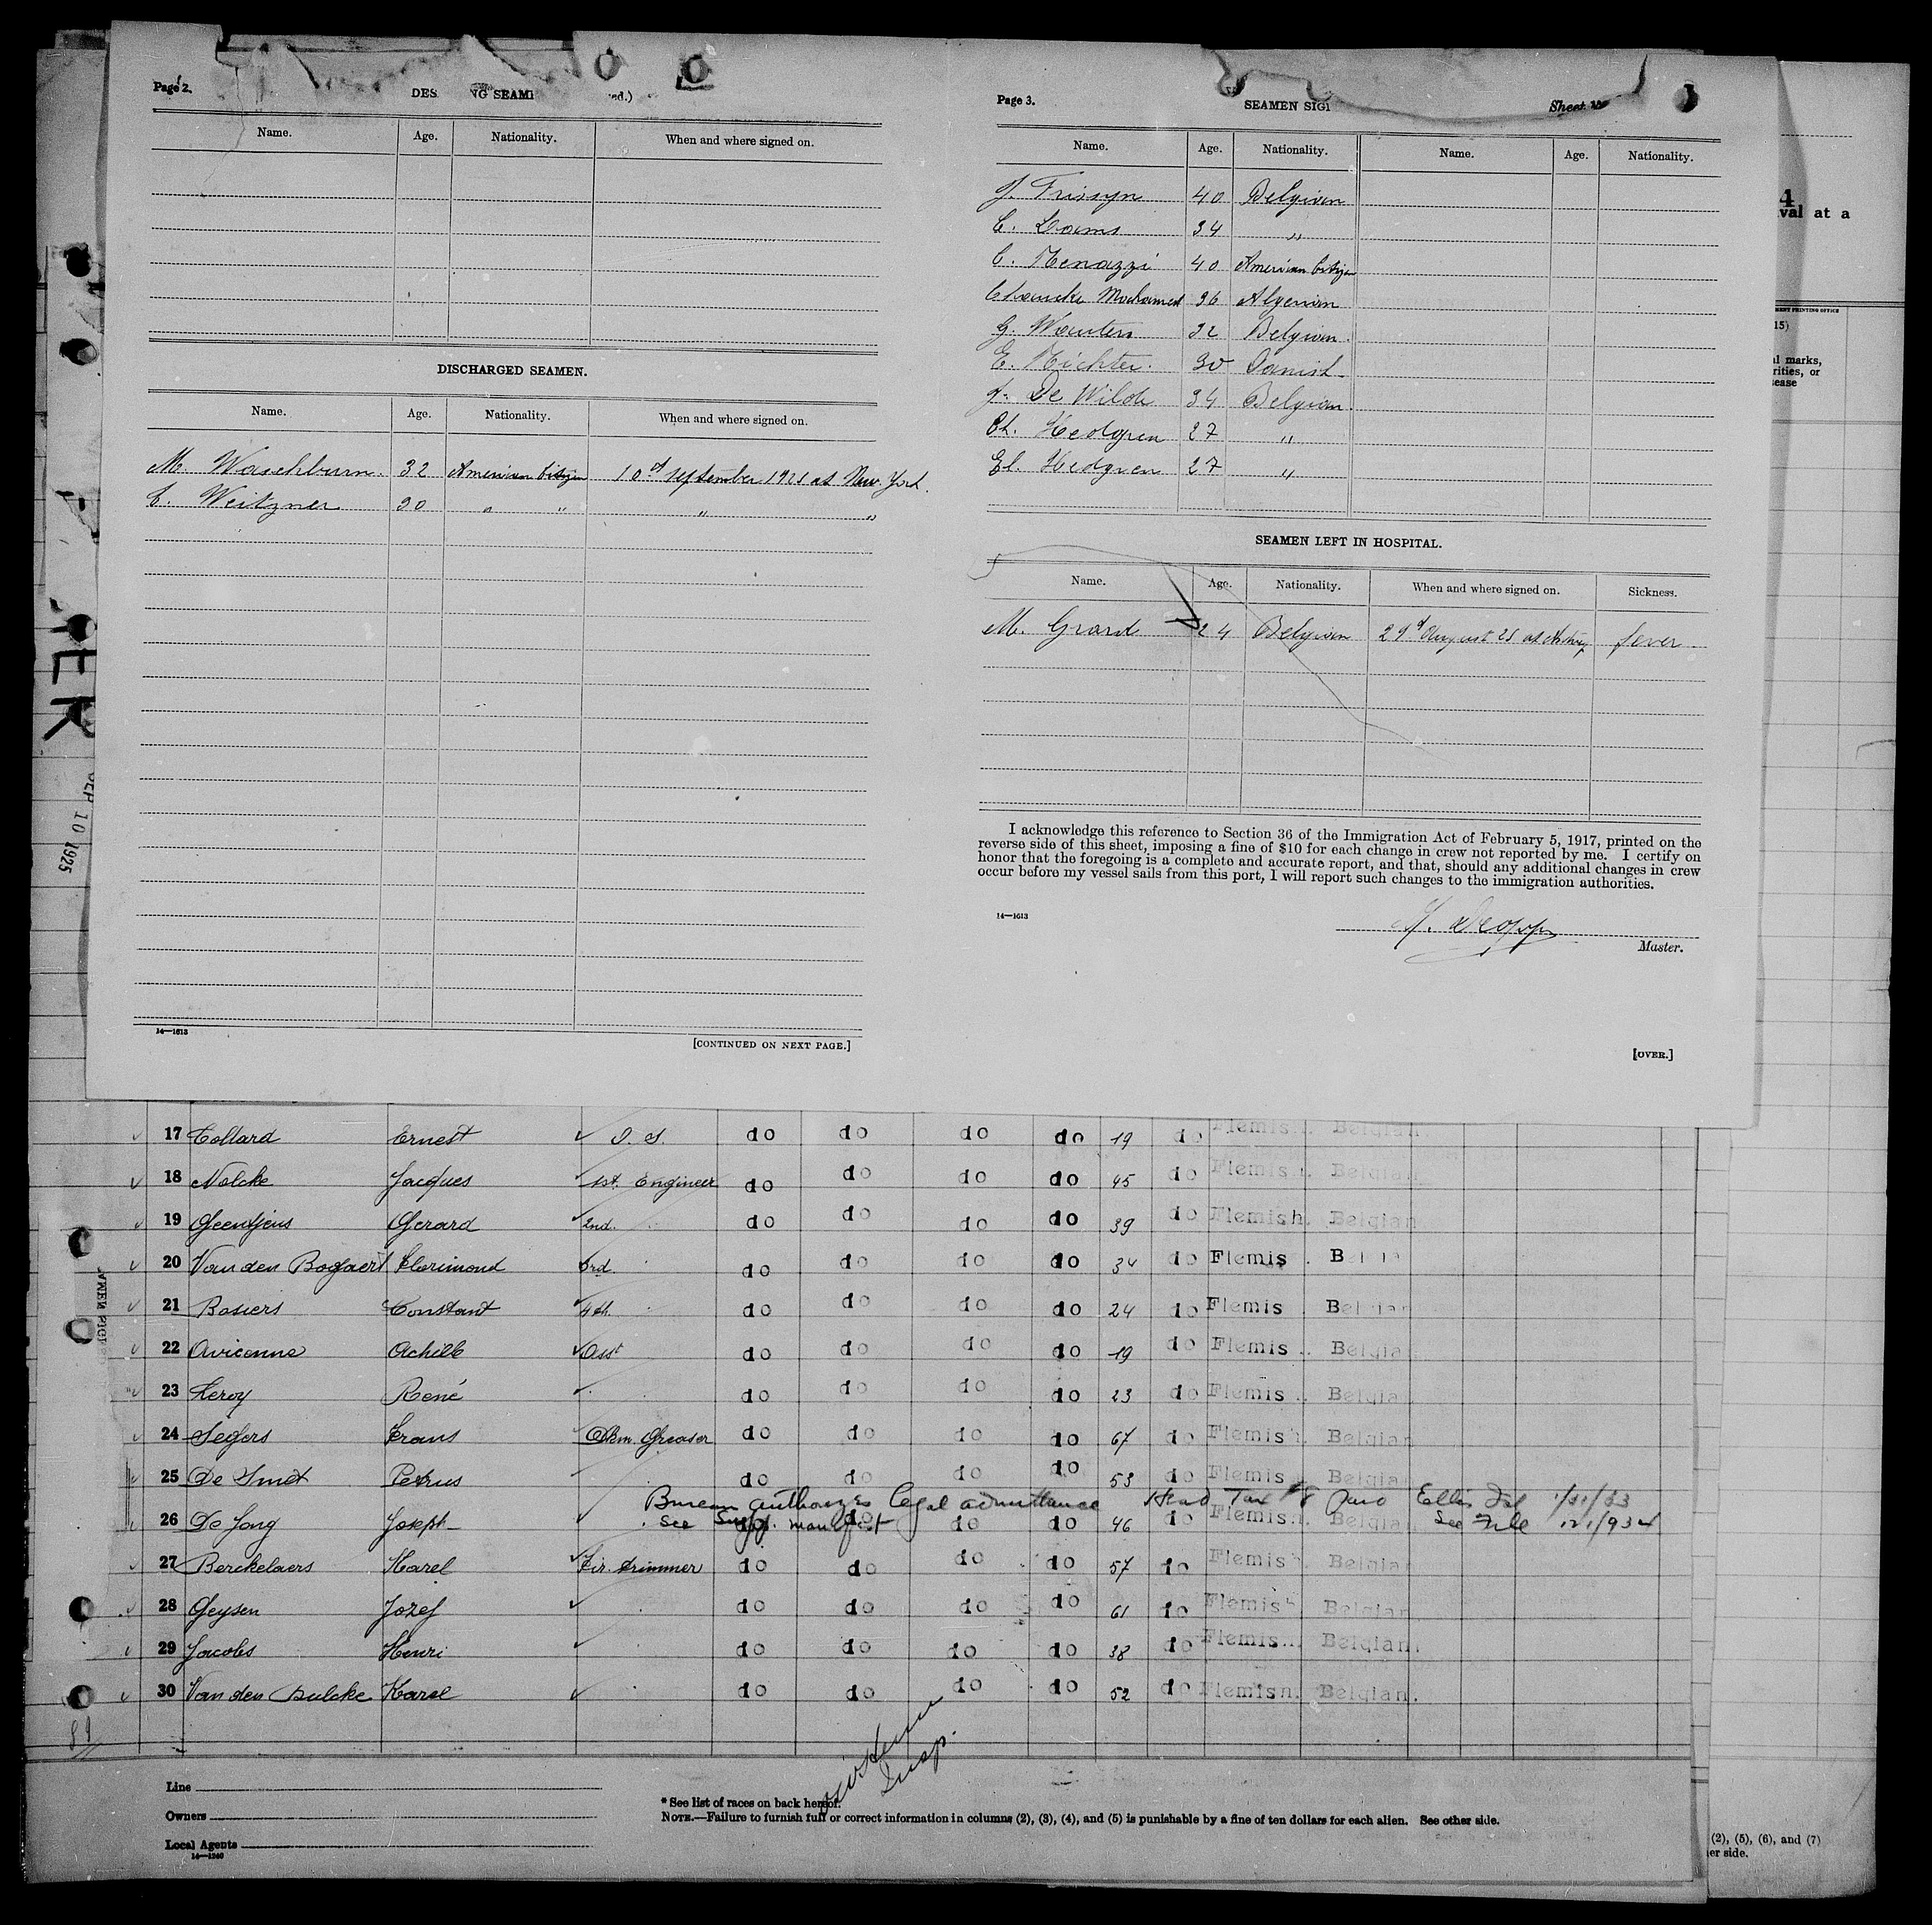 Page 2.
Name. Age. Nationality. When and where signed on.
DISCHARGED SEAMEN.
Name. Age. Nationality. When and where signed on.
M. Waschburn. 32 American Citizen 10d September 1925 at New York.
C. Weitzner 30 " " " "
14—1613
[CONTINUED ON NEXT PAGE.]
Page 3.
SEAMEN SIG
Sheet
Name. Age. Nationality. Name. Age. Nationality.
J. Frissyn 40 Belgian
C. Dams 34 "
C. Menazzi 40 American Citizen
Mohamed 36 Algerian
G. Wauters 32 Belgian.
E. Richter. 30 Danish
J. De Wilde 34 Belgian.
Ch. Hedgren 27 "
El. Hedgren 27 "
SEAMEN LEFT IN HOSPITAL.
Name. Age. Nationality. When and where signed on. Sickness.
M. Grard 24 Belgian 29d August 25 at fever
I acknowledge this reference to Section 36 of the Immigration Act of February 5, 1917, printed on the
reverse side of this sheet, imposing a fine of $10 for each change in crew not reported by me. I certify on
honor that the foregoing is a complete and accurate report, and that, should any additional changes in crew
occur before my vessel sails from this port, I will report such changes to the immigration authorities.
14—1613
Master.
[OVER.]
4
val at a
15)
l marks,
rities, or
sease
SEP 10 1925
17 Collard Ernest O. S. do do do do 19 do Flemish. Belgian.
18 Nolcke Jacques 1st. Engineer do do do do 45 do Flemish. Belgian
19 Geentjens Gerard 2nd. do do do do 39 do Flemish. Belgian
20 Van den Bogaert Florimond 3rd do do do do 34 do Flemis B
21 Basiers Constant 4th. do do do do 24 do Flemis . Belgian
22 Avicenne Achille Asst do do do do 19 do Flemis . Belgian
23 Leroy René do do do do 23 do Flemis . Belgian
24 Segers Frans Dkm. Greaser do do do do 67 do Flemish. Belgian
25 De Smet Petrus do do do do 53 do Flemis . Belgian
Bureau authorizes legal admittance Head Tax $8 paid Ellis Isl 1/31/33
26 De Jong Joseph do do do do 46 do Flemish. Belgian
See Supp. manifest See File
27 Berckelaers Karel Fir. trimmer do do do do 57 do Flemish Belgian
28 Geysen Jozef do do do do 61 do Flemish Belgian
29 Jacobs Henri do do do do 38 do Flemis.. Belgian.
30 Van den Bulcke Karel do do do do 52 do Flemish. Belgian.
Insp.
Line
Owners
Local Agents
14—1240
* See list of races on back hereof.
NOTE.—Failure to furnish full or correct information in columns (2), (3), (4), and (5) is punishable by a fine of ten dollars for each alien. See other side.
(2), (5), (6), and (7)
er side.